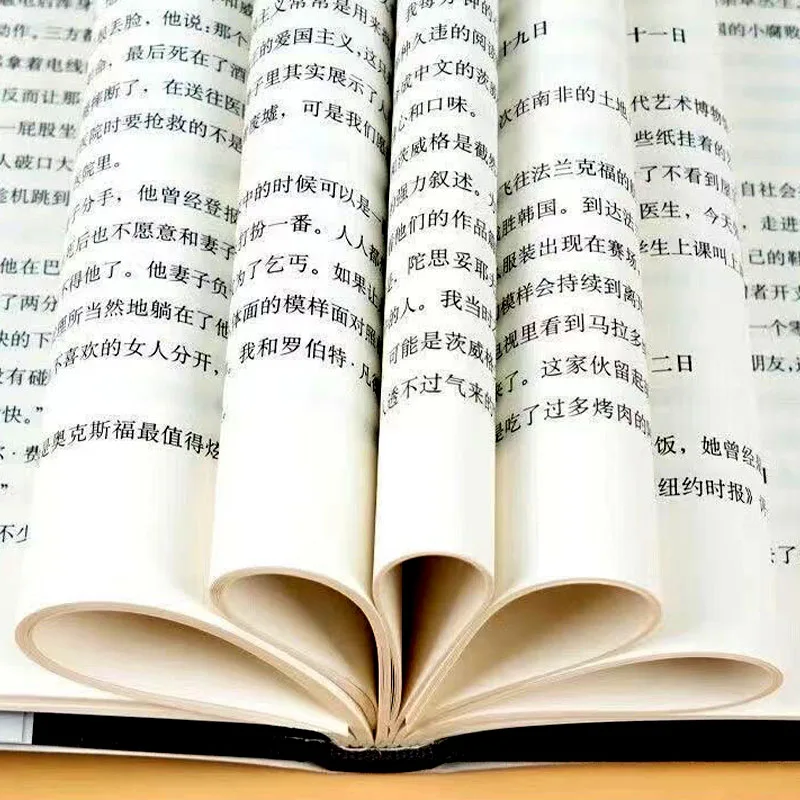 动作。三方都
拿着电线
反而让那
一屁股坐
人破口大
趁机跳到
他在巴
了两分
快的下
没有碰
快。”
不少
很丢脸，他说：那个
命，最后死在了酒
挥断了，在送往医
医院时要抢救的不是
医院里。
子分手，他曾经登报
死后也不愿意和妻子
不得他了。他妻子负
理所当然地躺在了他
不喜欢的女人分开，
是奥克斯福最值得炫
主义常常是用来
的爱国主义，这
子里其实展示了人
废墟，可是我们
中的时候可以是一
打扮一番。人人都
为了乞丐。如果让
体面的模样面对照
我和罗伯特·凡
种久违的阅读
成中文的茨
心和口味。
茨威格是截然
的强力叙述。
他们的作品
陀思妥耶
的人。我当时
可能是茨威格
透不过气来的
十九日
次在南非的土地
飞往法兰克福的
战胜韩国。到达法
服装出现在赛场
模样会持续到离
电视里看到马拉多
来了。这家伙留起
是吃了过多烤肉的
十一日
代艺术博物
些纸挂着的
了不看到
医生，今天
学生上课叫上
二日
饭，她曾经是
纽约时报》
的小腐败
自社会
走进
己的鞋
者开文
一个零
朋友，
去了